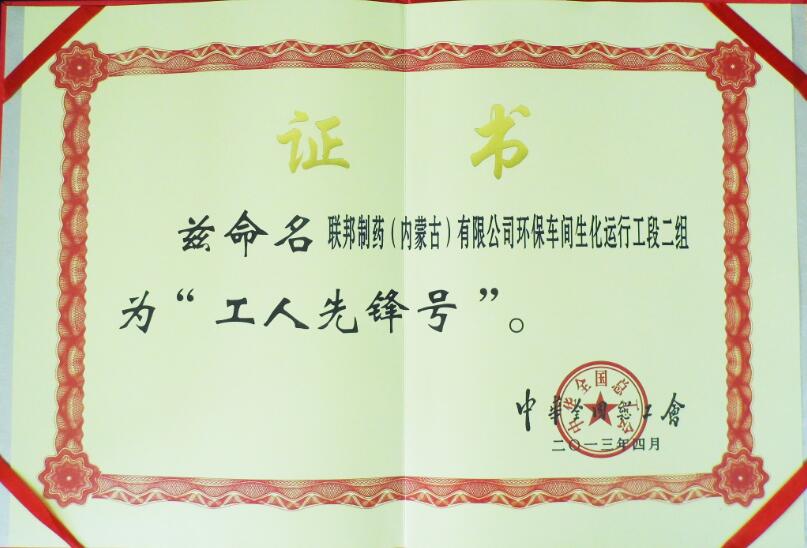 证 书
兹命名 联邦制药(内蒙古)有限公司环保车间生化运行工段二组
为“工人先锋号”。
中華全国總工會
中华全国总工会
二〇一三年四月